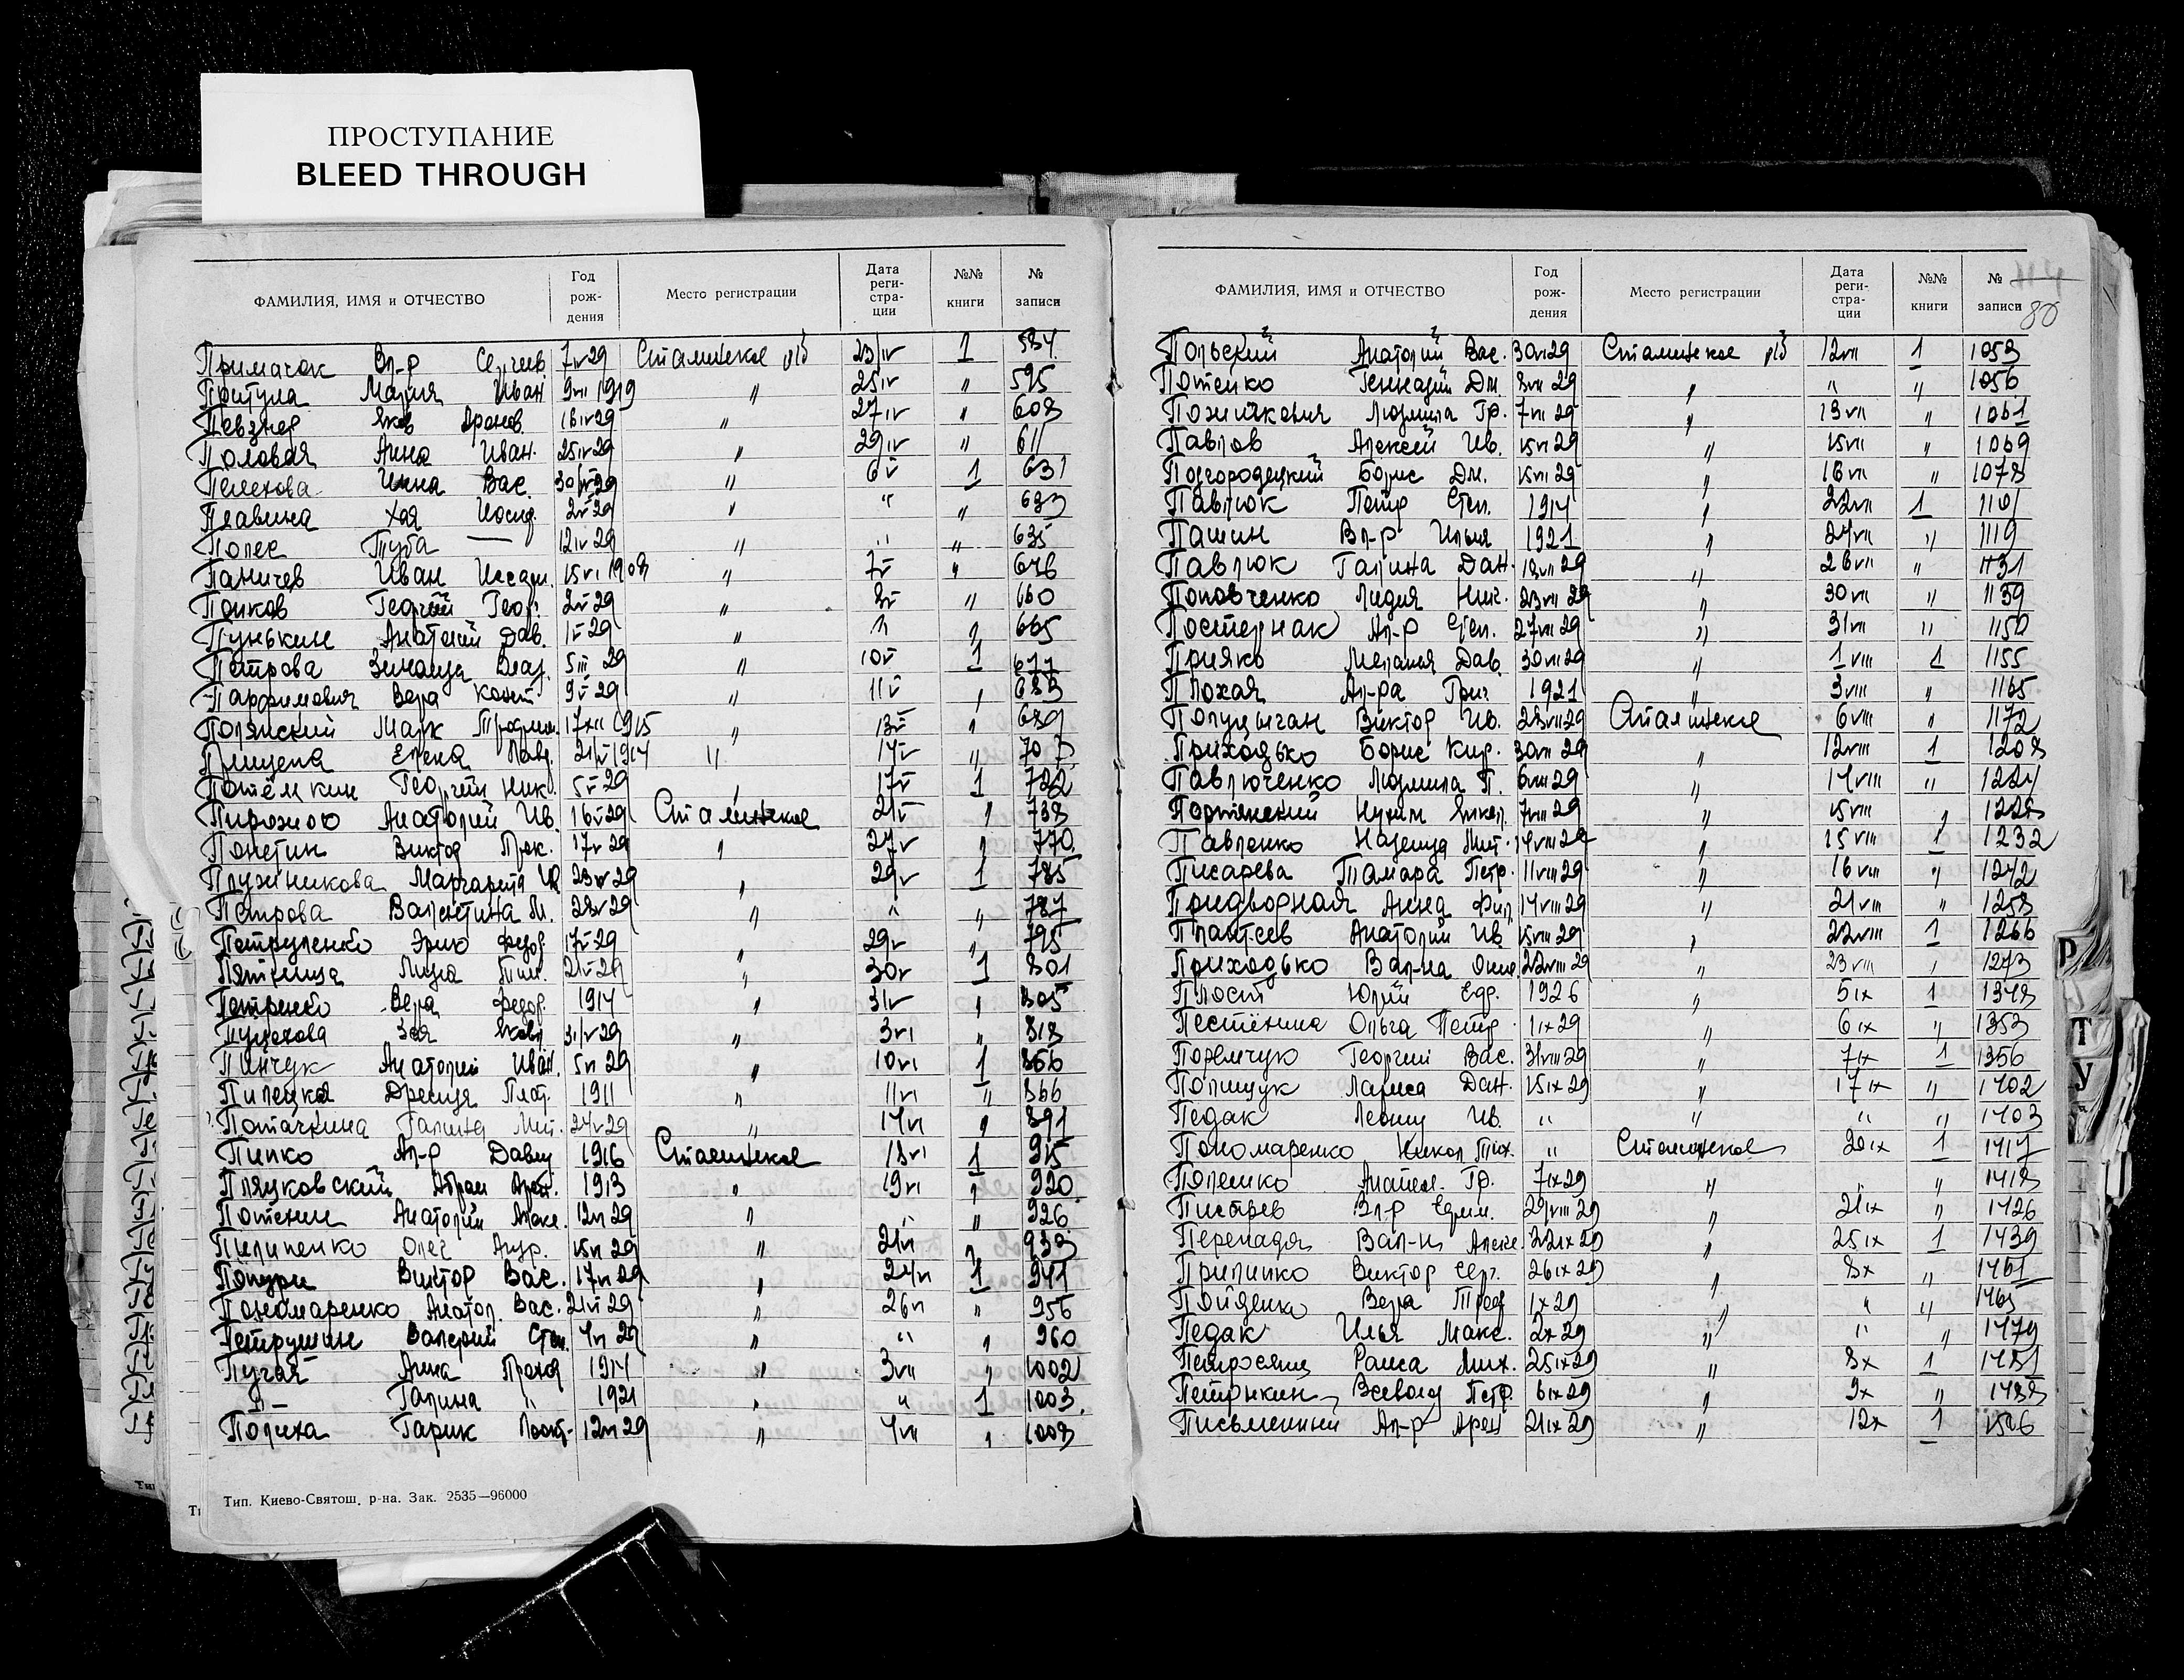 ПРОСТУПАНИЕ
BLEED THROUGH
ФАМИЛИЯ, ИМЯ и ОТЧЕСТВО Год рождения Место регистрации Дата регистрации №№ книги № записи
Примачок Вл-р Сергеев. 7 IV 29 Сталинское р/б 23/IV 1 594
Притула Мария Иван 9 VII 1919 " 25 IV " 595
Певзнер Яков Аронов. 18 IV 29 " 27 IV " 608
Половая Анна Иван. 25 IV 29 " 29 IV " 611
Пелехова Инна Вас. 30/IV 29 " 6 V 1 631
Плавина Хая Иосиф. 2 V 29 " " " 633
Полек Туба — 12 IV 29 " " " 635
Паничев Иван 15 VI 1908 " 7 V " 646
Попков Георгий Геор. 2 V 29 " 8 V " 660
Пунькин Анатолий Дав. 1 V 29 " " " 665
Петрова Зинаида 5 III 29 " 10 V 1 677
Парфимович Вера Конст 9 V 29 " 11 V " 683
Полянский Марк 17 XII 1915 " 13 V " 689
Прищепа Елена 21/V 1914 " 14 V " 707
Потёмкин Георгий Ник. 5 V 29 " 17 V 1 722
Пирожою Анатолий Ив. 16 V 29 Сталинское 21 V " 738
Понетин Виктор Прок. 17 V 29 " 27 V " 770
Плужникова Маргарита 23 V 29 " 29 V 1 785
Петрова Валентина М. 28 V 29 " " " 787
Петруленко Эрик Федор. 17 V 29 " 29 V " 795
Пятница Лиза Тим. 21 V 29 " 30 V 1 801
Петренко Вера Федор. 1914 " 31 V " 805
Зоя Яковл 31/V 29 " 3 VI " 818
Пинчук Анатолий Иван. 5 VI 29 " 10 VI 1 856
Пилецкая Плат. 1911 " 11 VI " 866
Поташкина Галина Мит. 24 V 29 " 14 VI " 891
Пипко Ал-р Давид 1916 Сталинское 18 VI 1 915
Пляцковский Абрам Арон. 1913 " 19 VI " 920
Потехин Анатолий Алекс. 12 VI 29 " " " 926
Пилипенко Олег Андр. 15 VI 29 " 21 VI " 939
Виктор Вас. 17 VI 29 " 24 VI 1 941
Пономаренко Анатол. Вас. 21 VI 29 " 26 VI " 956
Петрушин Валерий Степ. 4 VI 29 " " " 960
Пугая Анна Прохор 1914 " 3 VII " 1002
—"— Галина " 1921 " " 1 1003
Полиха Гарик 12 VI 29 " 4 VII " 1008
Тип. Киево-Святош. р-на. Зак. 2535—96000
80
ФАМИЛИЯ, ИМЯ и ОТЧЕСТВО Год рождения Место регистрации Дата регистрации №№ книги № записи
Польский Анатолий Вас. 30 VI 29 Сталинское р/б 12 VII 1 1053
Потейко Геннадий Дм. 8 VII 29 " " " 1056
Людмила Гр. 7 VII 29 " 13 VII " 1061
Павлов Алексей Ив. 15 VI 29 " 15 VII " 1069
Подгородецкий Борис Дм. 15 VII 29 " 16 VII " 1078
Павлюк Петр Степ. 1914 " 22 VII 1 1101
Пашин Вл-р Ильич 1921 " 24 VII " 1119
Павлюк Галина Дан. 18 VII 29 " 26 VII " 1131
Поповченко Лидия Ник. 23 VII 29 " 30 VII " 1139
Постернак Ал-р Степ. 27 VII 29 " 31 VII " 1150
Прияко Мелания Дав. 30 VII 29 " 1 VIII 1 1155
Плохая Ал-ра Григ. 1921 " 3 VIII " 1165
Полуцыган Виктор Ив. 28 VII 29 Сталинское 6 VIII " 1172
Приходько Борис Кир. 30 VII 29 " 12 VIII 1 1208
Павлюченко Людмила П. 6 VIII 29 " 14 VIII " 1224
Портянский Нухим 7 VIII 29 " 15 VIII " 1228
Павленко Надежда Мит. 14 VIII 29 " 15 VIII 1 1232
Писарева Тамара Петр. 11 VIII 29 " 16 VIII " 1242
Придворная Анна Фил. 14 VIII 29 " 21 VIII " 1258
Плаксеев Анатолий Ив 15 VIII 29 " 22 VIII 1 1266
Приходько Вал-на 22 VIII 29 " 23 VIII " 1273
Плосит Юрий Едр. 1926 " 5 IX 1 1348
Пестёнина Ольга Петр. 1 IX 29 " 6 IX " 1353
Поремчук Георгий Вас. 31 VIII 29 " 7 IX 1 1356
Полищук Лариса Дан. 15 IX 29 " 17 IX " 1402
Педак Леонид Ив. " " " " 1403
Пономаренко Никол Тих. " Сталинское 20 IX 1 1417
Полешко Анатол. Гр. 7 IX 29 " " " 1418
Пистрев Вл-р Ефим. 29/VIII 29 " 21 IX " 1426
Перепадя Вал-н Алекс. 22 IX 29 " 25 IX 1 1439
Прилипко Виктор Серг. 26 IX 29 " 8 X " 1461
Пойденко Вера Троф 1 X 29 " " " 1465
Педак Илья Макс. 2 X 29 " " " 1479
Петросянц Раиса Мих. 25 IX 29 " 8 X 1 1481
Петрыкин Всеволод Петр. 6 IX 29 " 9 X " 1488
Письменный Ал-р Арон 21 IX 29 " 12 X 1 1506
Р
Т
У